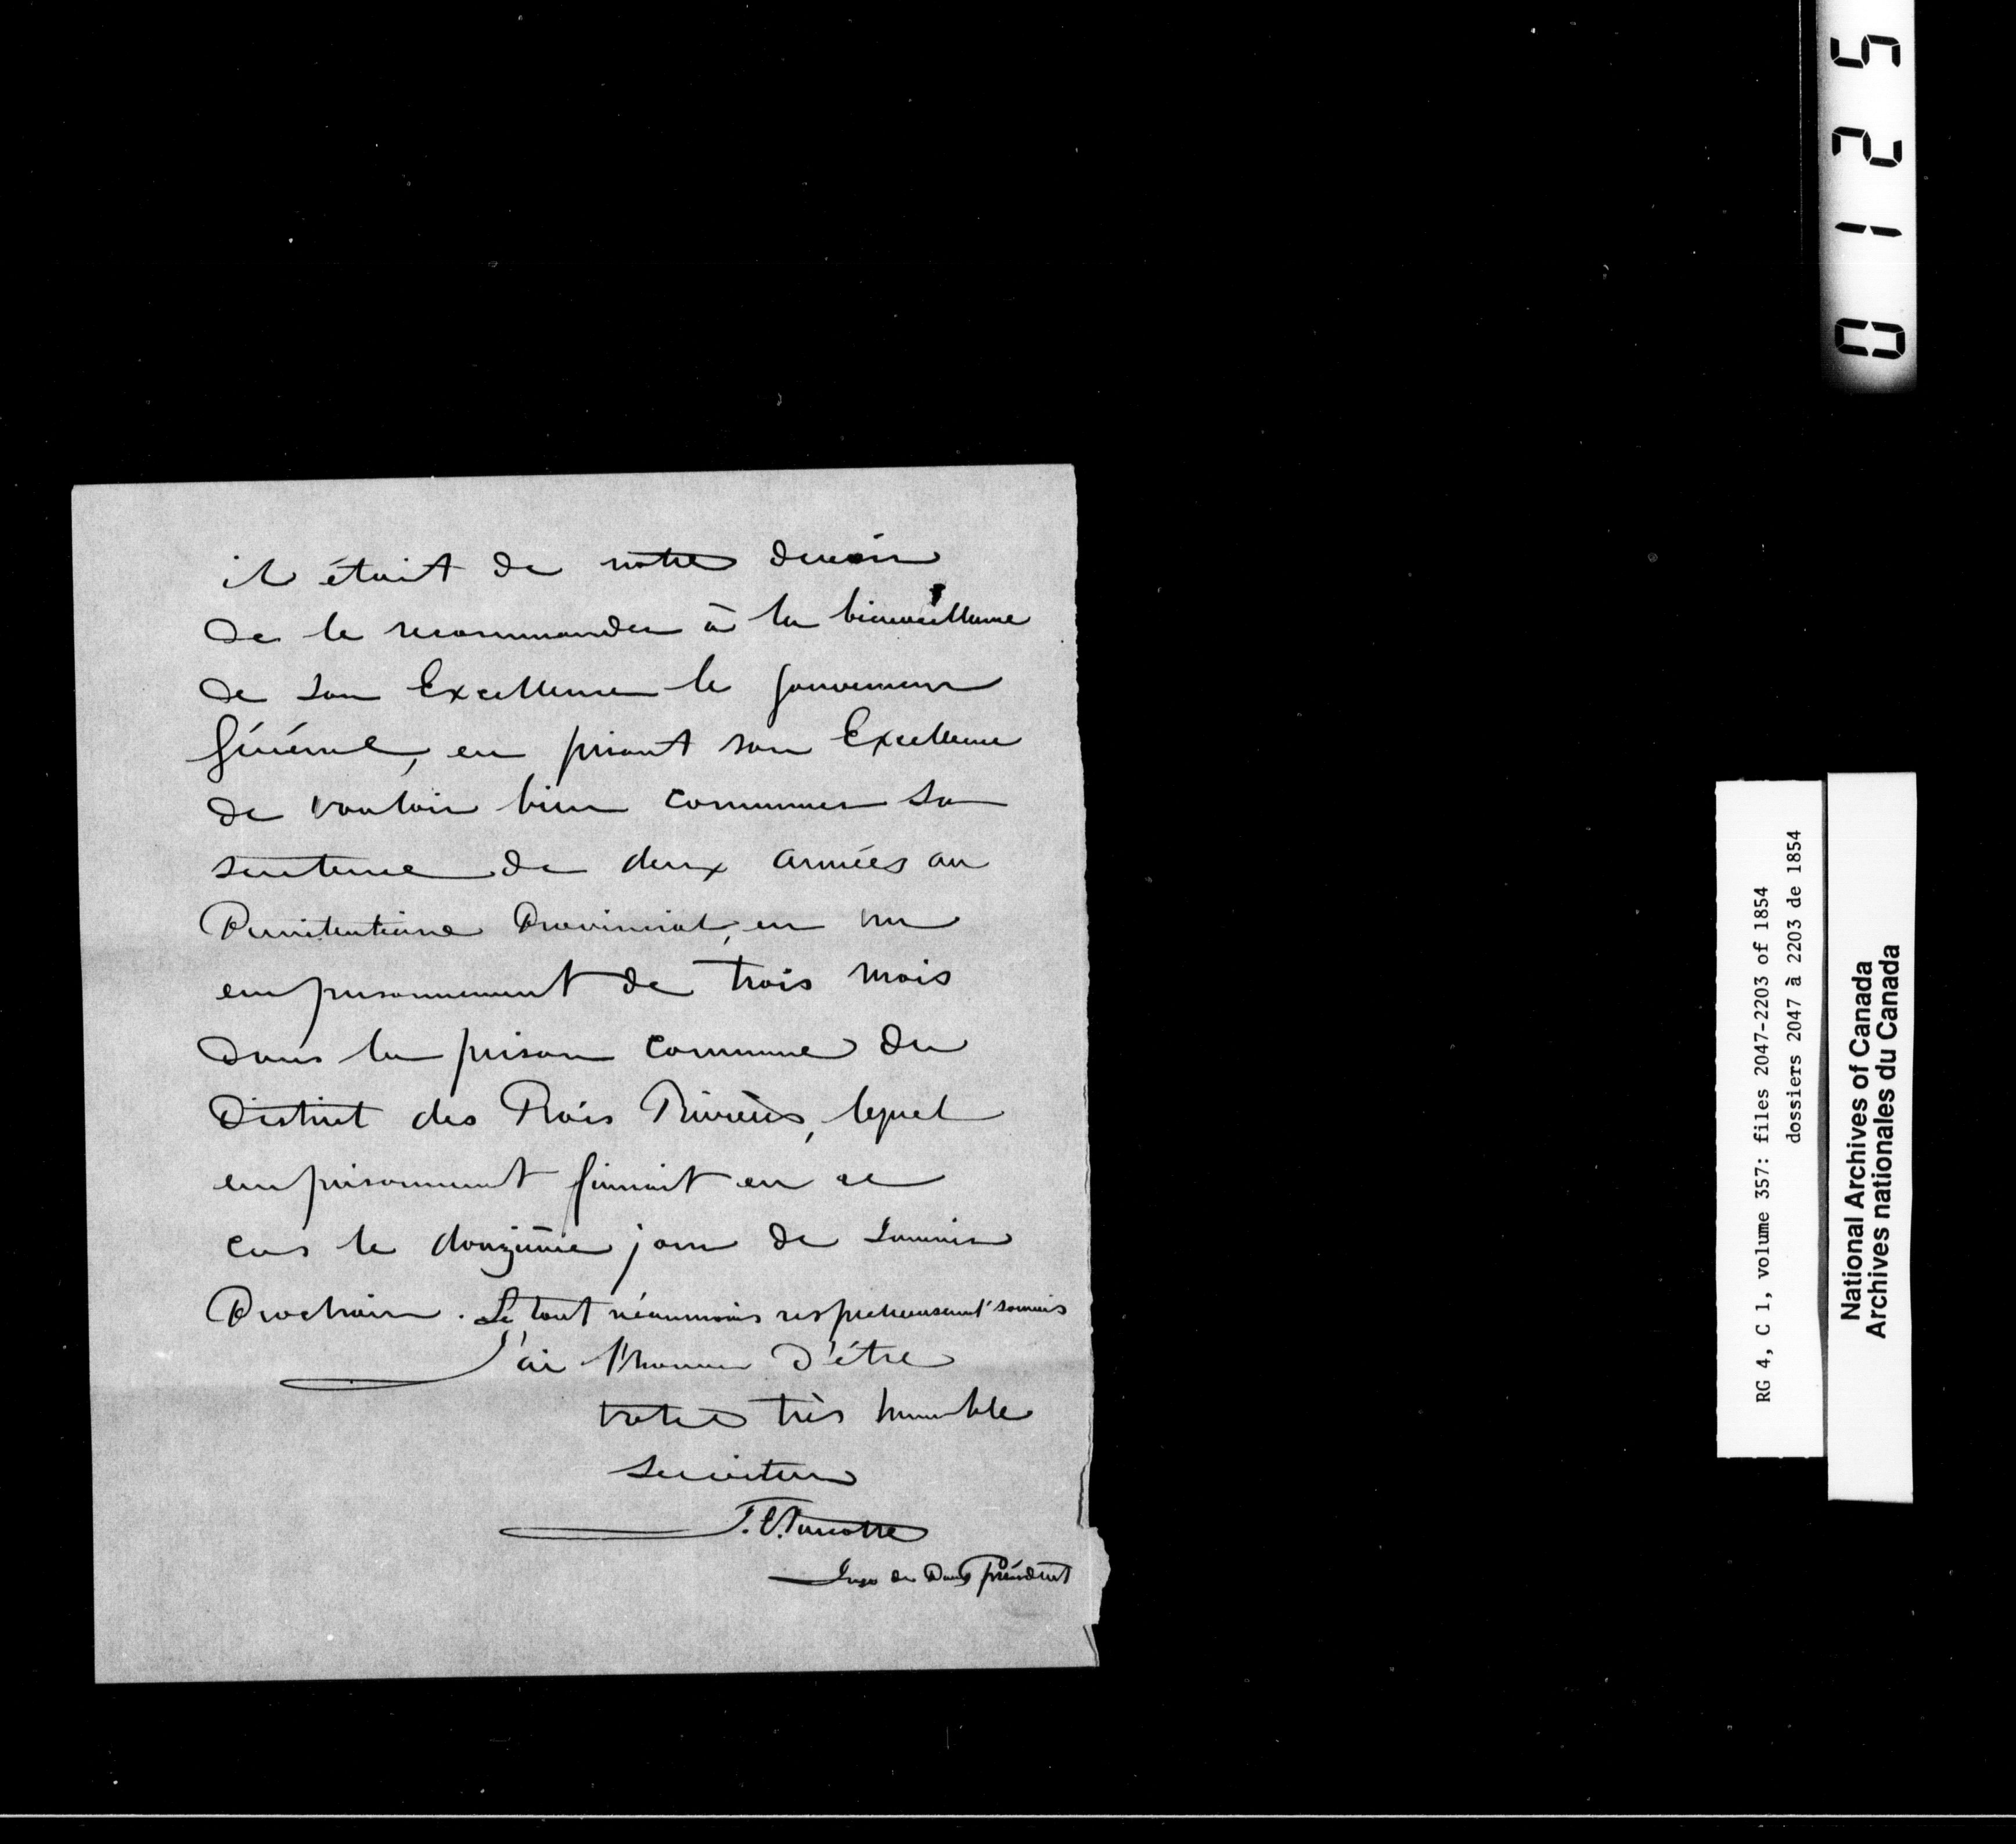 il était de notre devoir
de le recommander à la bienveillance
de son Excellence le gouverneur
Général, en priant son Excellence
de vouloir bien commuer sa
sentence de deux années au
Penitentiaire Provincial, en un
emprisonnement de trois mois
dans la prison commune du
District des Trois Rivières, lequel
emprisonnement finirait en ce
cas le douzième jour de Janvier
Prochain. Le tout néanmoins respectueusement soumis
J'ai l'honneur d'être
votre très humble
serviteur
J. E. Turcotte
Juge de Paix Président
0125
RG 4, C 1, volume 357: files 2047-2203 of 1854
dossiers 2047 à 2203 de 1854
National Archives of Canada
Archives nationales du Canada